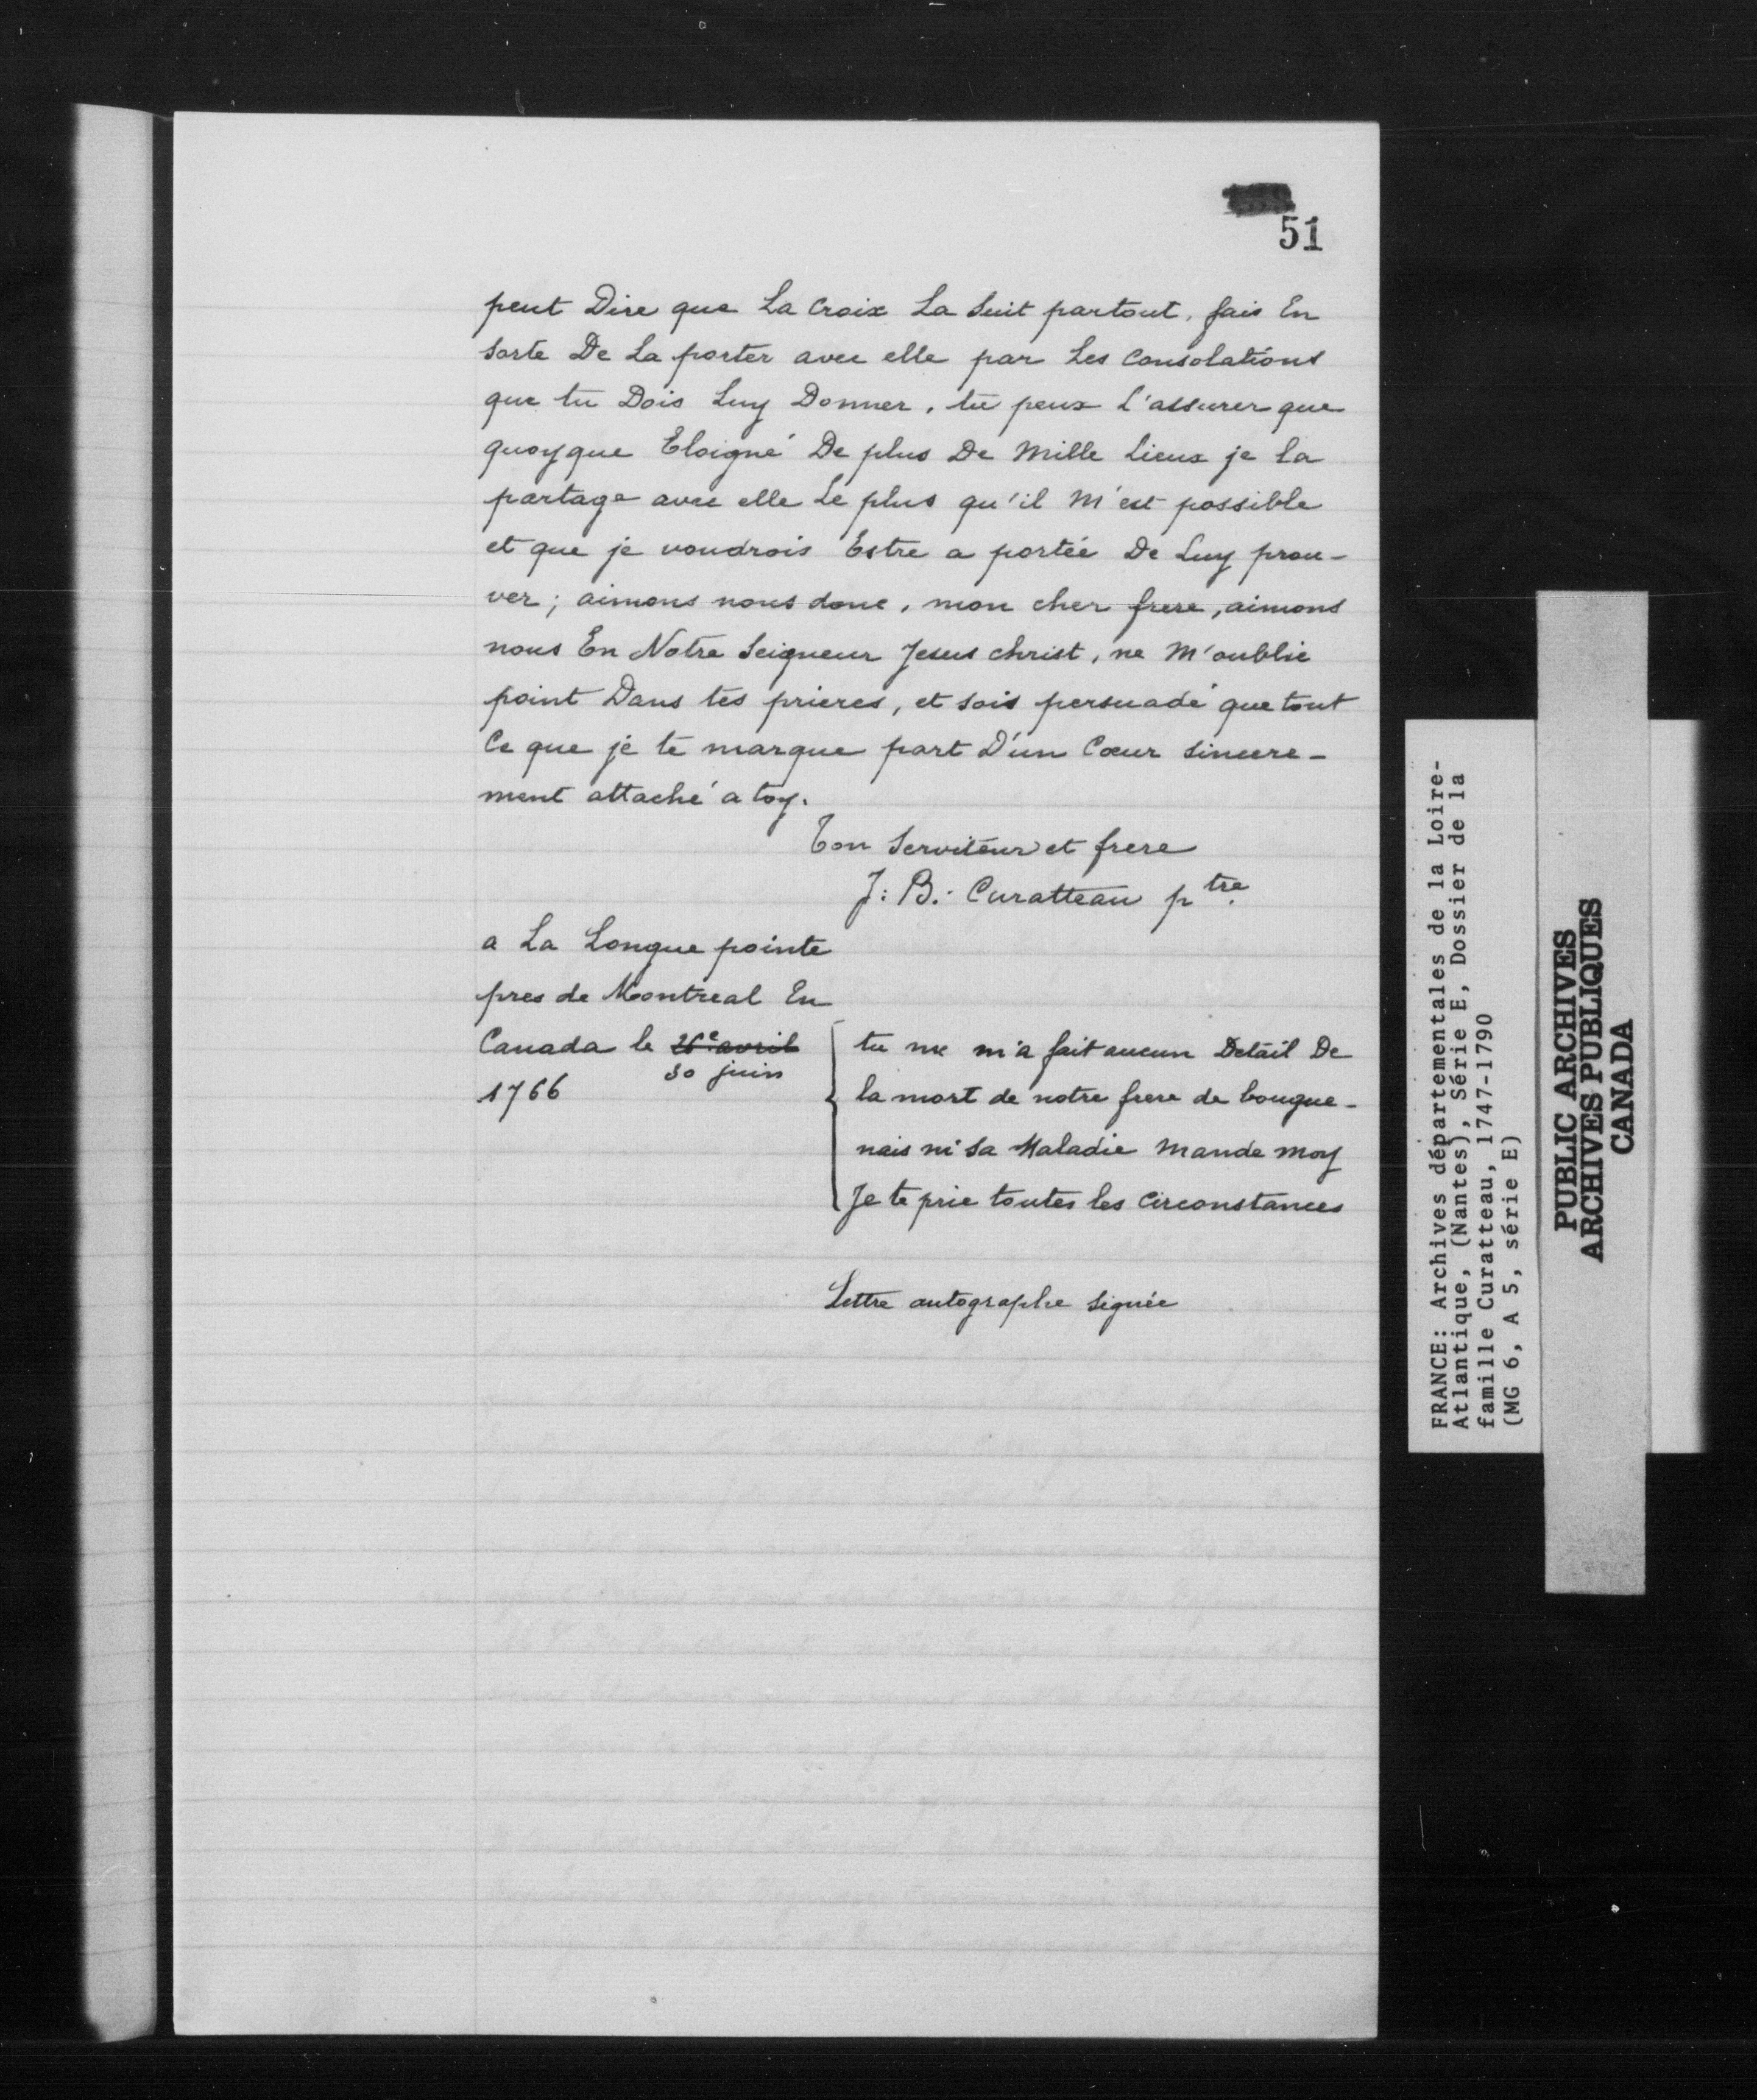 51
peut Dire que La Croix La Suit partout, fais En
Sorte De La porter avec elle par Les Consolations
que tu Dois Luy Donner, tu peux L'assurer que
quoyque Eloigné De plus De Mille Lieux je La
partage avec elle Le plus qu'il M'est possible
et que je voudrois Estre a portée De Luy prou-
ver; aimons nous donc, mon cher frere, aimons
nous En Notre Seigneur Jesus christ, ne M'oublie
point Dans tes prieres, et sois persuadé que tout
Ce que je te marque part D'un Cœur sincere-
ment attaché a toy.
Ton Serviteur et frere
J: B: Curatteau ptre.
a La Longue pointe
pres de Montreal En
Canada le 26e avril
30 juin
1766
tu ne m'a fait aucun Detail De
la mort de notre frere de bougue-
nais ni sa Maladie Mande Moy
Je te prie toutes les Circonstances
Lettre autographe signée
FRANCE: Archives départementales de la Loire-
Atlantique, (Nantes), Série E, Dossier de la
famille Curatteau, 1747-1790
(MG 6, A 5, série E)
PUBLIC ARCHIVES
ARCHIVES PUBLIQUES
CANADA